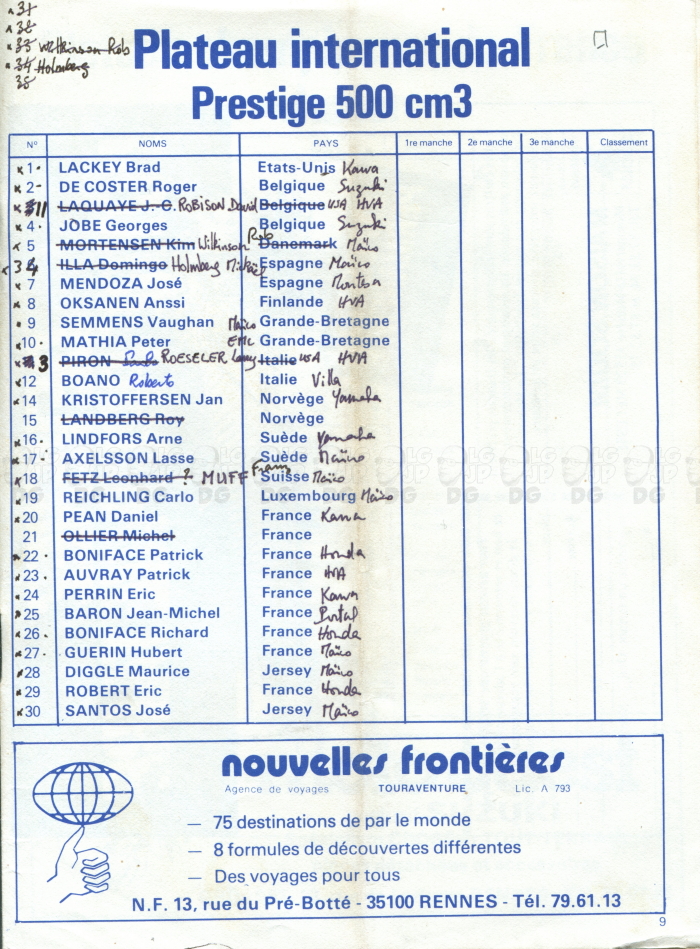 31
32
33 Wilkinson Rob
34 Holmberg
35
Plateau international
Prestige 500 cm3
N° NOMS PAYS 1re manche 2e manche 3e manche Classement
x 1 LACKEY Brad Etats-Unis Kawa
x 2 DE COSTER Roger Belgique Suzuki
x 11 LAQUAYE J.-C. ROBISON David Belgique USA HVA
x 4 JOBE Georges Belgique Suzuki
x 5 MORTENSEN Kim Wilkinson Rob Danemark Maïco
x 34 ILLA Domingo Holmberg Espagne Maïco
x 7 MENDOZA José Espagne Montesa
x 8 OKSANEN Anssi Finlande HVA
9 SEMMENS Vaughan Maïco Grande-Bretagne
x 10 MATHIA Peter EMC Grande-Bretagne
x 3 PIRON ROESELER Larry Italie USA HVA
x 12 BOANO Roberto Italie Villa
x 14 KRISTOFFERSEN Jan Norvège Yamaha
15 LANDBERG Roy Norvège
x 16 LINDFORS Arne Suède Yamaha
x 17 AXELSSON Lasse Suède Maïco
x 18 FETZ Leonhard ? MUFF Franz Suisse Maïco
x 19 REICHLING Carlo Luxembourg Maïco
x 20 PEAN Daniel France Kawa
21 OLLIER Michel France
x 22 BONIFACE Patrick France Honda
x 23 AUVRAY Patrick France HVA
x 24 PERRIN Eric France Kawa
x 25 BARON Jean-Michel France Portal
x 26 BONIFACE Richard France Honda
x 27 GUERIN Hubert France Maïco
x 28 DIGGLE Maurice Jersey Maïco
x 29 ROBERT Eric France Honda
x 30 SANTOS José Jersey Maïco
LG JP DG
nouvelles frontières
Agence de voyages TOURAVENTURE Lic. A 793
— 75 destinations de par le monde
— 8 formules de découvertes différentes
— Des voyages pour tous
N.F. 13, rue du Pré-Botté - 35100 RENNES - Tél. 79.61.13
9